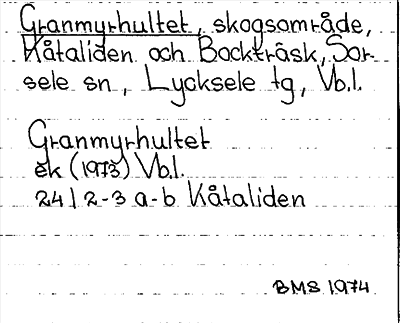 Granmyrhultet, skogsområde,
Kåtaliden och Backträsk, Sor-
sele sn, Lycksele tg, Vb.l.
Granmyrhultet
ek (1973) Vb.l.
24 I 2-3 a-b Kåtaliden
BMS 1974